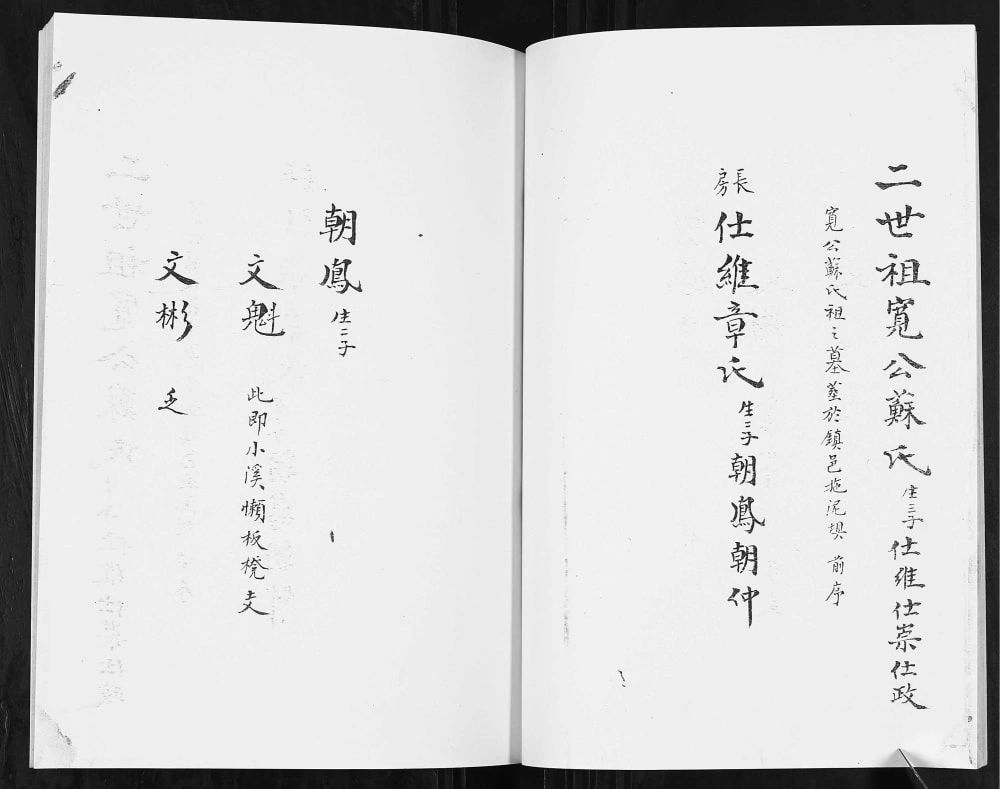 二世祖寬公蘇氏 生三子 仕維仕崇仕政
寬公蘇氏祖之墓塟於鎮邑拖泥垻 前序
長房 仕維章氏 生二子 朝鳳朝仲
朝鳳 生二子
文魁 此即小溪懶板櫈支
文彬 乏